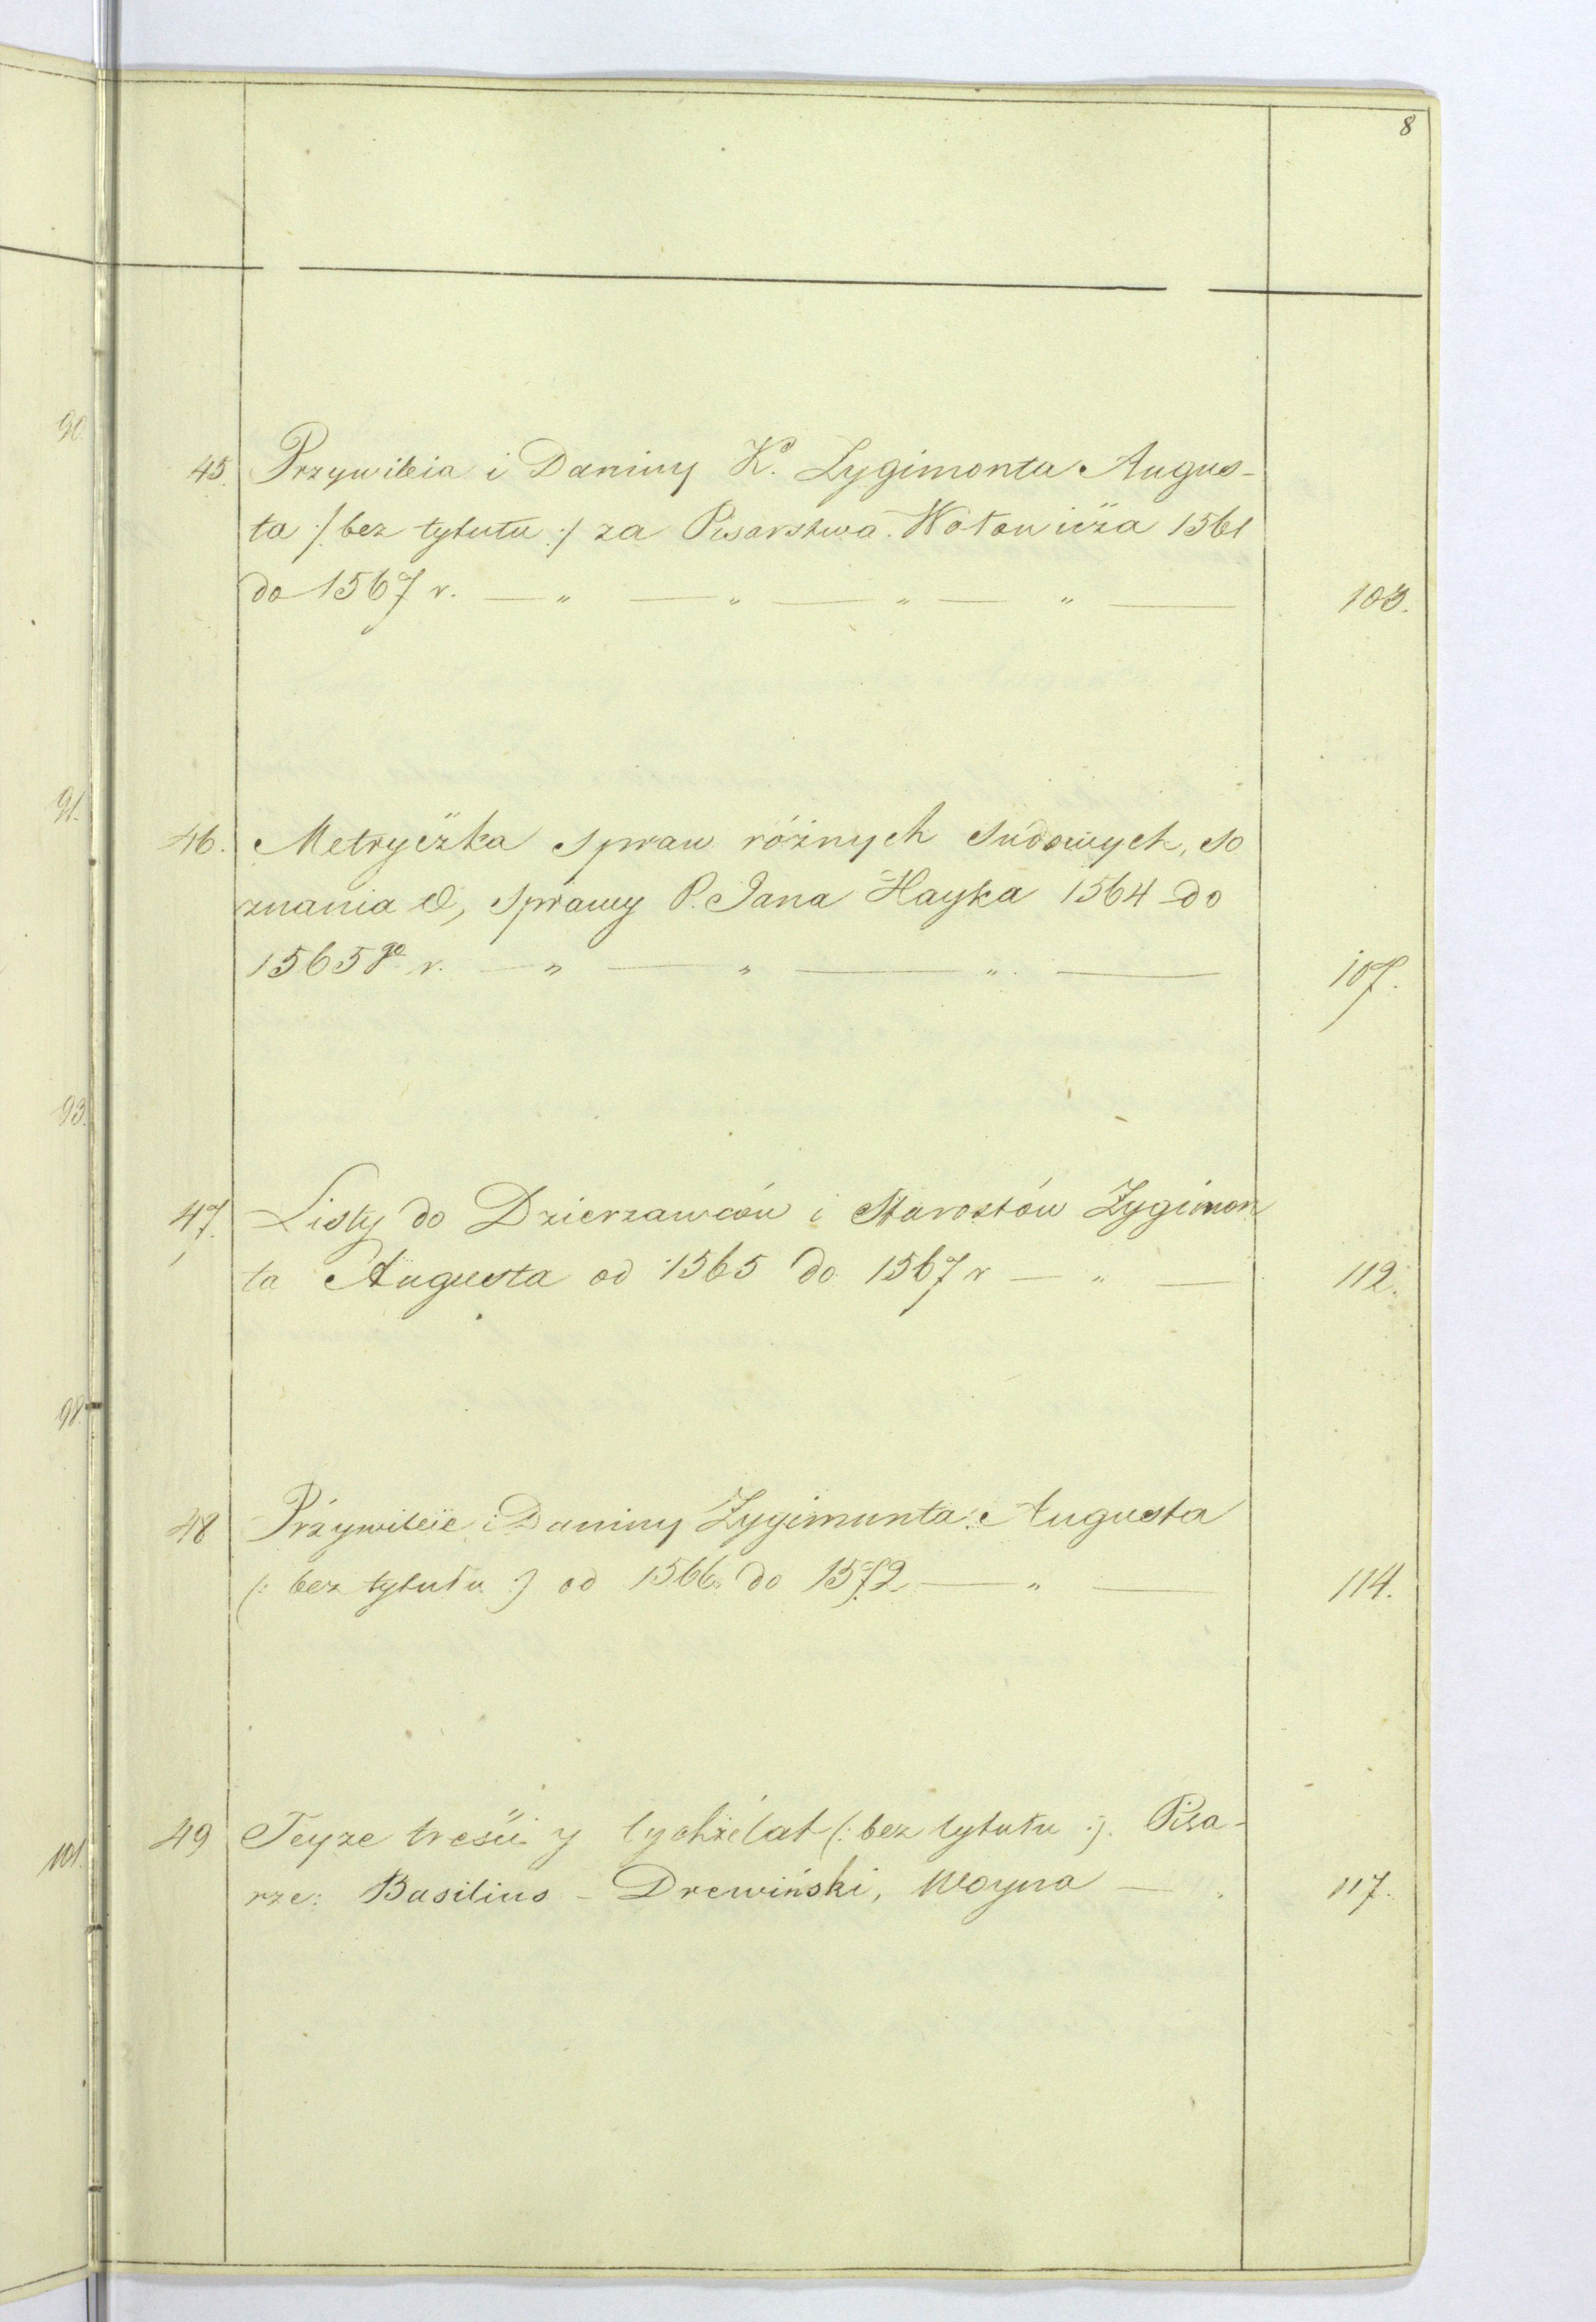 8
45. Przywileia i Daniny K. Zygimonta Augus-
ta /: bez tytułu :/ za Pisarstwa Wołowicza 1561
do 1567 r. — " — " — " — " — 103.
46. Metryczka spraw różnych sądowych, so
znania &, sprawy P. Jana Hayka 1564 do
1565 go r. — " — " — " — 107.
47. Listy do Dzierzawców i Starostów Zygimon
ta Augusta od 1565 do 1567 r — " — 112.
48 Przywileie i Daniny Zygimunta Augusta
(: bez tytułu :) od 1566 do 1572 — " — 114.
49 Teyze treści y tychże lat (: bez tytułu :). Pisa-
rze: Basilius - Drewiński, Woyna — " 117.
90.
91.
93.
98.
101.